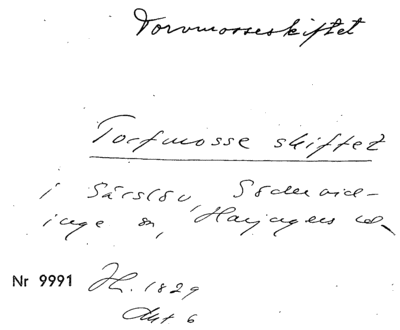 Torvmosseskiftet
Torfmosse skiftet
i Särslöv, Södervid-
inge sn, Harjagers hd
Nr 9991 Jh. 1829
Akt 6